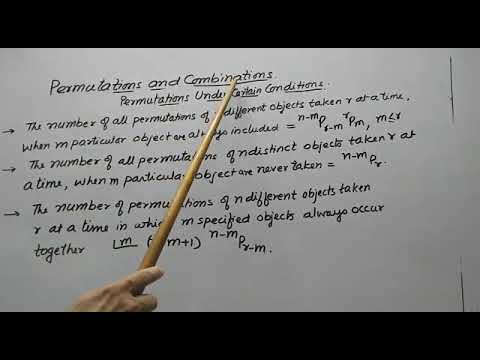 Permutations and Combinations.
Permutations Under Certain Conditions.
→ The number of all permutations of n different objects taken r at a time,
when m particular object are always included = ⁿ⁻ᵐPᵣ₋ₘ ʳPₘ, m≤r
→ The number of all permutations of n distinct objects taken r at
a time, when m particular object are never taken = ⁿ⁻ᵐPᵣ.
→ The number of permutations of n different objects taken
r at a time in which m specified objects always occur
together m m+1) ⁿ⁻ᵐPᵣ₋ₘ.